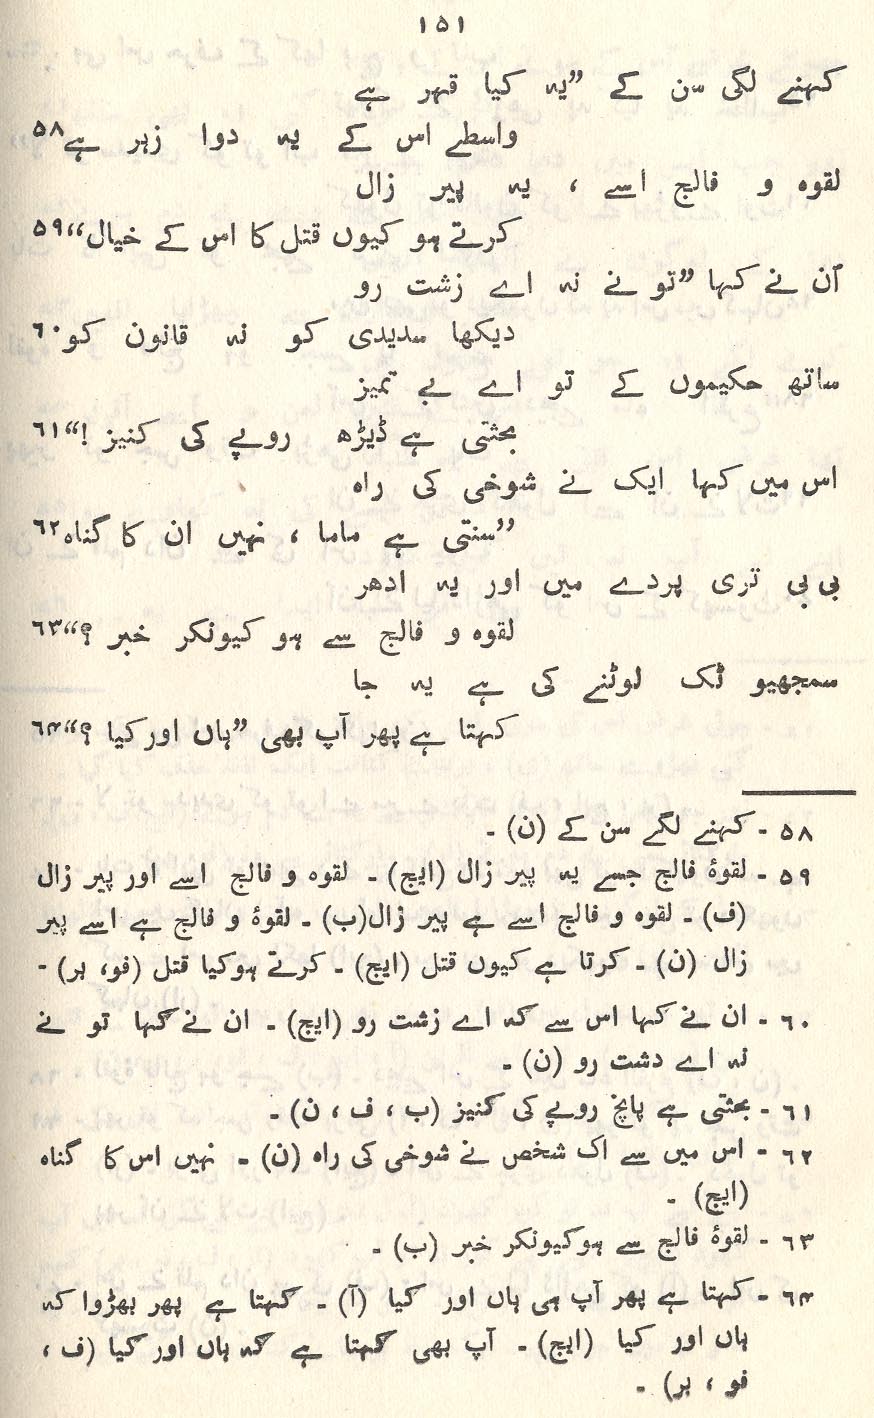 ۱۵۱
کہنے لگی سن کے ”یہ کیا قہر ہے
واسطے اس کے یہ دوا زہر ہے۵۸
لقوہ و فالج اسے ، یہ پیر زال
کرتے ہو کیوں قتل کا اس کے خیال“۵۹
اُن نے کہا ”تو نے نہ اے زشت رو
دیکھا سدیدی کو نہ قانون کو۶۰
ساتھ حکیموں کے تو اے بے تمیز
بحثتی ہے ڈیڑھ روپے کی کنیز !“۶۱
اس میں کہا ایک نے شوخی کی راہ
”سنتی ہے ماما ، نہیں ان کا گناہ۶۲
بی بی تری پردے میں اور یہ ادھر
لقوہ و فالج سے ہو کیونکر خبر ؟“۶۳
سمجھیو ٹک لوٹنے کی ہے یہ جا
کہتا ہے پھر آپ بھی ”ہاں اور کیا ؟“۶۴
۵۸ - کہنے لگے سن کے (ن) -
۵۹ - لقوۂ فالج جسے یہ پیر زال (ایچ) - لقوہ و فالج اسے اور پیر زال
(ف) - لقوہ و فالج اسے ہے پیر زال(ب) - لقوۂ و فالج ہے اسے پیر
زال (ن) - کرتا ہے کیوں قتل (ایچ) - کرتے ہو کیا قتل (فو، بر) -
۶۰ - ان نے کہا اس سے کہ اے زشت رو (ایچ) - ان نے کہا تو نے
نہ اے دشت رو (ن) -
۶۱ - بحثتی ہے پانچ روپے کی کنیز (ب ، ف ، ن) -
۶۲ - اس میں سے اک شخص نے شوخی کی راہ (ن) - نہیں اس کا گناہ
(ایچ) -
۶۳ - لقوۂ فالج سے ہو کیونکر خبر (ب) -
۶۴ - کہتا ہے پھر آپ ہی ہاں اور کیا (آ) - کہتا ہے پھر بھڑوا کہ
ہاں اور کیا (ایچ) - آپ بھی کہتا ہے کہ ہاں اور کیا (ف ،
فو ، بر) -